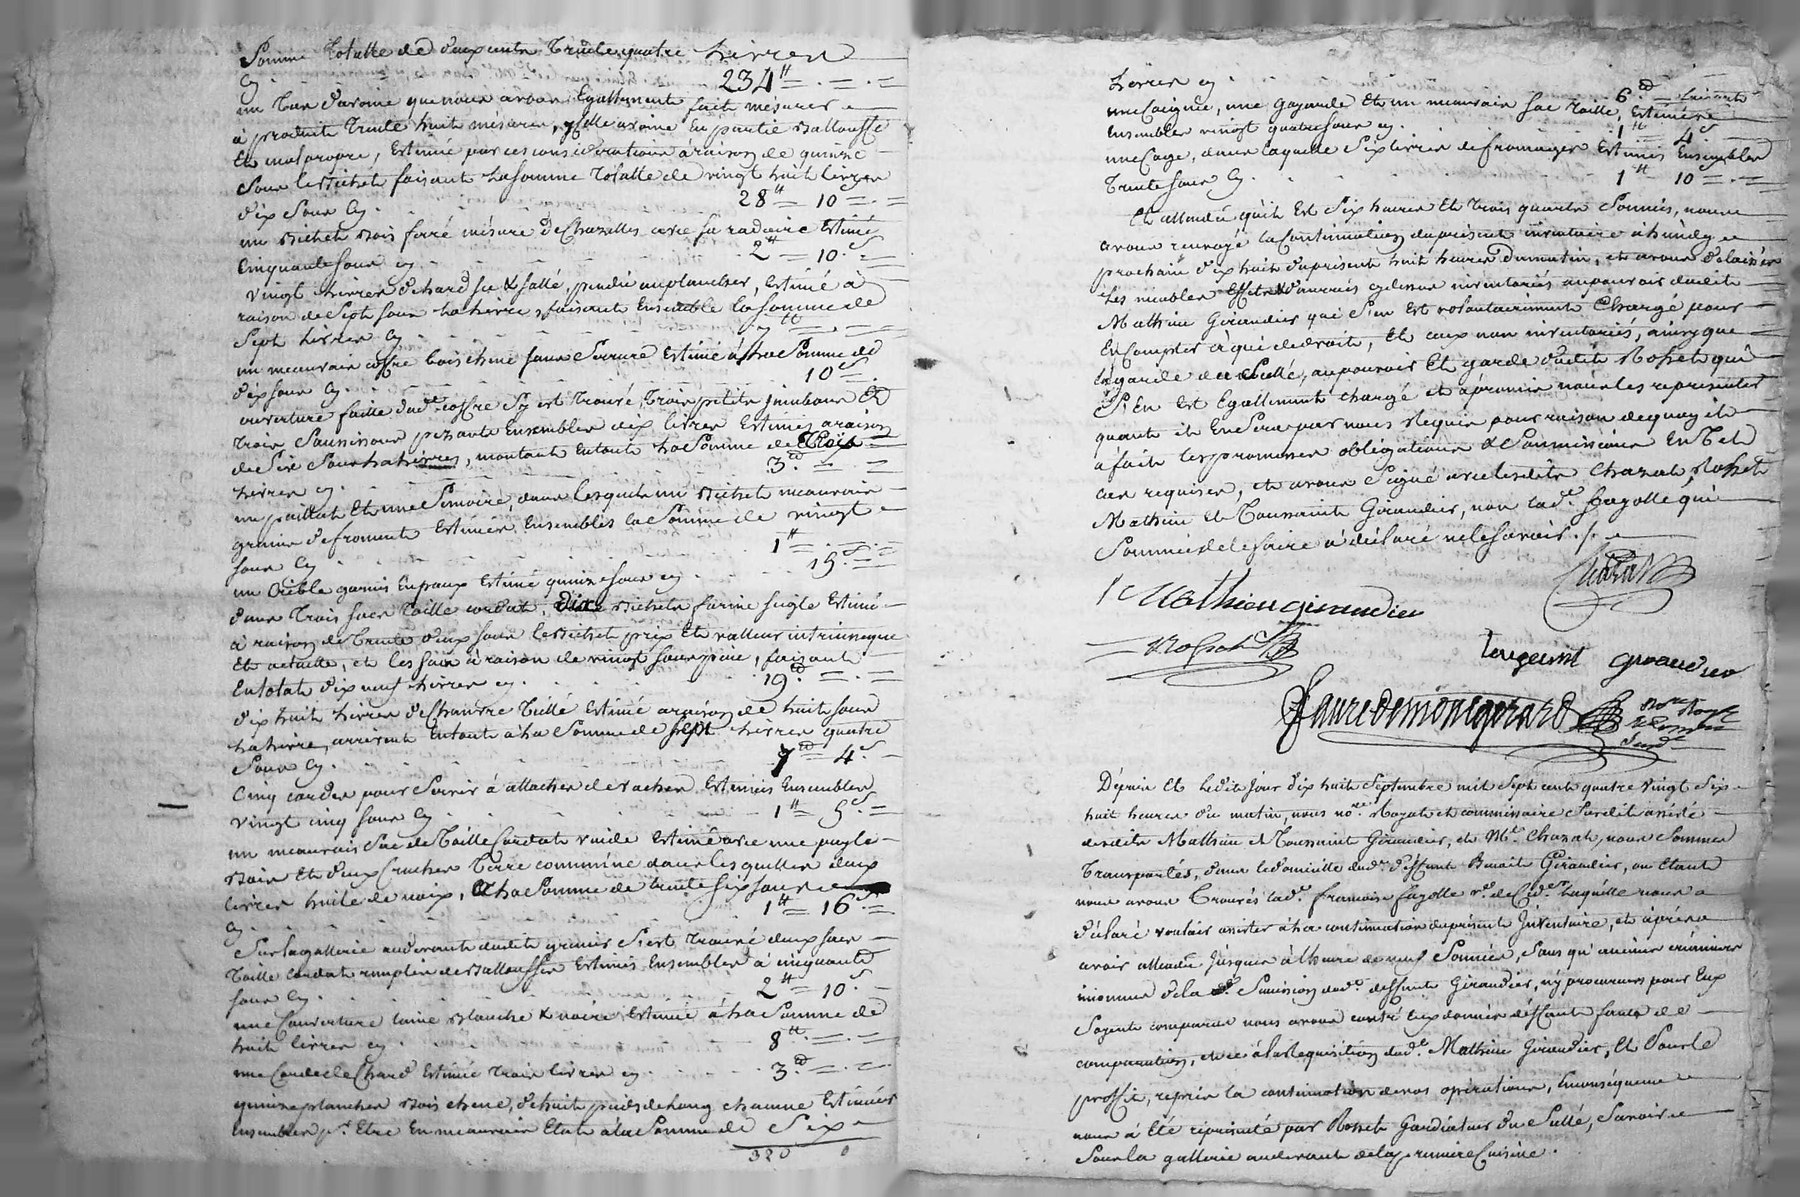 Somme totalle de deux cents trente quatre livres
cy 234 ₶
un tas d'avoine que nous avons Egallement fait mésurer
à produit trente huit mésures, icelle avoine en partie Ballouffe
et malpropre, Estimée par ces considerations à raison de quinze
sous le Bichet faisant la somme totalle de vingt huit livres
dix sous cy. 28 ₶ 10
un Bichet Bois ferré mésure de Chazelles avec sa radoire Estimé
Cinquante sous cy 2 ₶ 10 s
vingt livres de lard sec & sallé, pendu au plancher, Estimé à
raison de sept sous la livre, faisant Ensemble la somme de
sept livres cy 7 ₶
un mauvais coffre bois chene sans serrure Estimé à la somme de
dix sous cy. 10 s
ouverture faitte dud. coffre s'y est trouvé, trois petits jambons Et
trois saucissons pezants Ensembles dix livres Estimés a raison
de six sous la livre, montant En tout la somme de trois
livres cy 3 ₶
un paillat Et une , dans lesquels un Bichet mauvais
graine de froment Estimés Ensembles la somme de vingt
sous cy 1 ₶
un Crible garnis En peaux Estimé quinze sous cy 15 s
dans trois sacs toille cordat, dix Bichets farine seigle Estimé
à raison de trente deux sous le Bichet prix Et valleur intrinseque
Et actuelle, et les sacs à raison de vingt sous piece, faisant
En total dix neuf livres cy 19 ₶
dix huit livres de Chanvre Tillé Estimé a raison de huit sous
la livre, arrivent En tout à la somme de sept livres quatre
sous cy 7 ₶ 4 s
Cinq cordes pour servir à attacher de vaches Estimés Ensembles
vingt cinq sous cy 1 ₶ 5 s
un mauvais sac de toille Cordat vuide Estimé avec une
Bois Et deux Cruches terre commune dans lesquelles deux
livres huile de noix, à la somme de trente six sous
cy 1 ₶ 16 s
Sur la gallerie au devant dudit grenier s'est trouvé deux sacs
toille Cordat remplis de Ballouffes Estimés Ensembles à cinquante
sous cy 2 ₶ 10 s
une Couverture laine Blanche & noire Estimée à la somme de
huit livres cy 8 ₶
une Estimé trois livres cy 3 ₶
quinze planches Bois chene, de huit pieds de long chacune Estimées
Ensembles pr. Etre En mauvais Etat à la somme de Six
320
Livres cy 6 ₶
une Coignée, une Et un mauvais sac toille, Estimés
Ensembles vingt quatre sous cy. 1 ₶ 4 s
une Cage, dans laquelle six livres de fromages Estimés Ensembles
trente sous cy 1 ₶ 10
Et attendu qu'il Est six heures Et trois quarts sonnées, nous
avons renvoyé la Continuation du présent inventaire à lundy
prochain dix huit du présent huit heures du matin, et avons délaissés
les meubles Effets & danrées cy dessus inventoriés au pouvoir dudit
Mathieu Giraudier qui s'en est volontairement Chargé pour
En Compter à qui de droit, Et ceux non inventoriés, ainsy que
la garde de scellé, au pouvoir Et garde dudit Rosset qui
s'En est Egallement chargé et a promis nous les représenter
quant il En sera par nous Requis pour raison de quoy il
a fait les promesses obligations & soumissions En tel
cas requises, et avons signé avec lesdits Chazat Rosset
Mathieu Et Toussaint Giraudier, non lad. fayolle qui
sommée de le faire a déclaré ne le savoir. /.
Chazat
Mathieu giraudier
Rosset
tougsaint giraudier
Faure de montgirard
Dépuis Et ledit jour dix huit septembre mil sept cent quatre vingt six
huit heures du matin, nous no.re Royal et commissaire susdit assisté
desdits Mathieu & Toussaint Giraudier, et Me. Chazat, nous sommes
transportés, dans le domicille dud. deffunt Benoit Giraudier, ou Etant
nous avons trouvés lad. francoise fayolle ve. de lad. laquelle nous a
déclaré vouloir assister à la continuation du présent Inventaire, et après
avoir attendu jusques à l'heure de neuf sonnée, sans qu'aucuns créanciers
inconnus de la succession dud. deffunt Giraudier, ny procureurs pour Eux
soyent comparus nous avons contre Eux donnés déffaut faute de
comparution, et à la Requisition dud. Mathieu Giraudier, Et sous le
proffit, repris la continuation de nos opérations, En conséquence
nous à Eté représenté par Rosset Gardiateur du scellé, savoir
Sous la gallerie au devant de la premiere Cuisine.